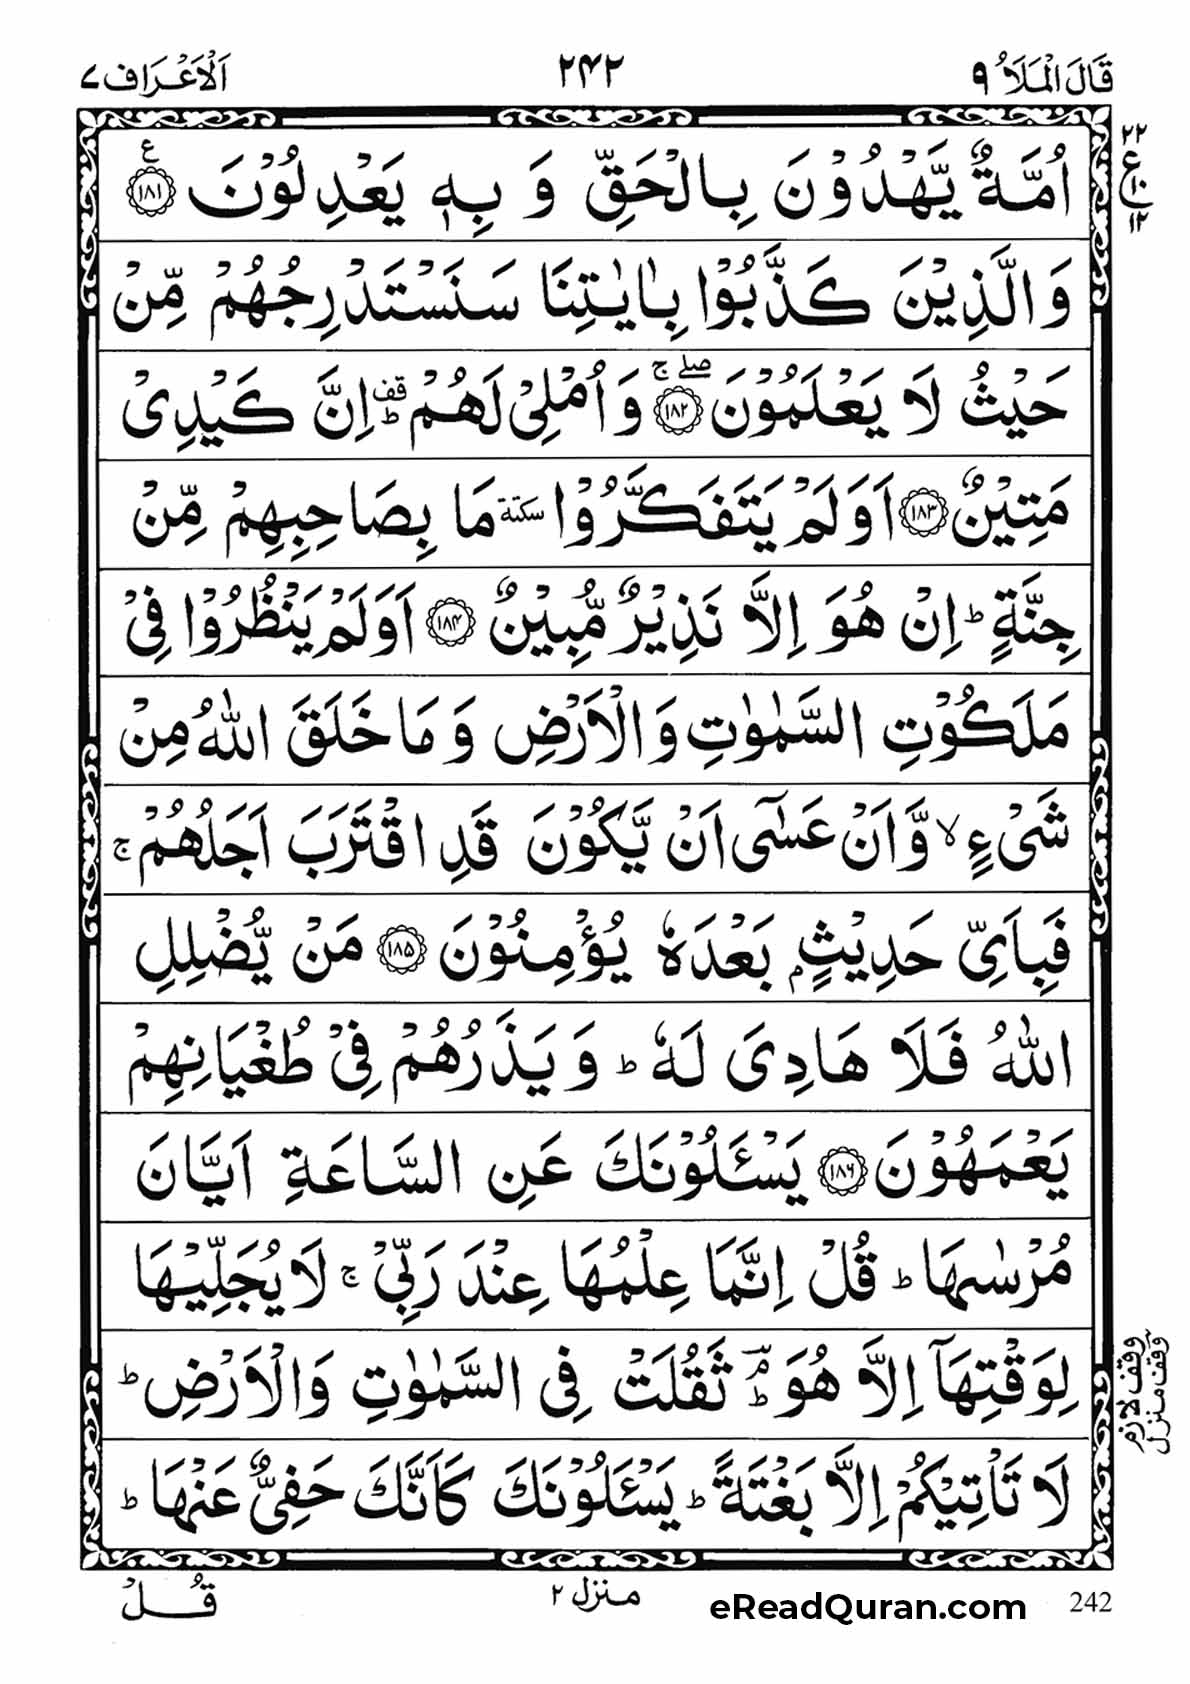 قَالَ الْمَلَاُ ٩ ٢٤٢ اَلْاَعْرَاف ٧
٢٢ ع ١٠ ١٢
اُمَّةٌ يَّهْدُوْنَ بِالْحَقِّ وَ بِهٖ يَعْدِلُوْنَ ﴿١٨١﴾ ع
وَالَّذِيْنَ كَذَّبُوْا بِاٰيٰتِنَا سَنَسْتَدْرِجُهُمْ مِّنْ
حَيْثُ لَا يَعْلَمُوْنَ ﴿١٨٢﴾ صلے ج وَاُمْلِيْ لَهُمْ قف ط اِنَّ كَيْدِيْ
مَتِيْنٌ ﴿١٨٣﴾ اَوَلَمْ يَتَفَكَّرُوْا سكتة مَا بِصَاحِبِهِمْ مِّنْ
جِنَّةٍ ط اِنْ هُوَ اِلَّا نَذِيْرٌ مُّبِيْنٌ ﴿١٨٤﴾ اَوَلَمْ يَنْظُرُوْا فِيْ
مَلَكُوْتِ السَّمٰوٰتِ وَالْاَرْضِ وَمَا خَلَقَ اللّٰهُ مِنْ
شَيْءٍ لا وَّاَنْ عَسٰٓى اَنْ يَّكُوْنَ قَدِ اقْتَرَبَ اَجَلُهُمْ ج
فَبِاَيِّ حَدِيْثٍۭ بَعْدَهٗ يُؤْمِنُوْنَ ﴿١٨٥﴾ مَنْ يُّضْلِلِ
اللّٰهُ فَلَا هَادِيَ لَهٗ ط وَيَذَرُهُمْ فِيْ طُغْيَانِهِمْ
يَعْمَهُوْنَ ﴿١٨٦﴾ يَسْـَٔلُوْنَكَ عَنِ السَّاعَةِ اَيَّانَ
مُرْسٰىهَا ط قُلْ اِنَّمَا عِلْمُهَا عِنْدَ رَبِّيْ ج لَا يُجَلِّيْهَا
لِوَقْتِهَآ اِلَّا هُوَ م ط ثَقُلَتْ فِي السَّمٰوٰتِ وَالْاَرْضِ ط
وقف لازم
وقف منزل
لَا تَاْتِيْكُمْ اِلَّا بَغْتَةً ط يَسْـَٔلُوْنَكَ كَاَنَّكَ حَفِيٌّ عَنْهَا ط
242 eReadQuran.com منزل ٢ قُلْ